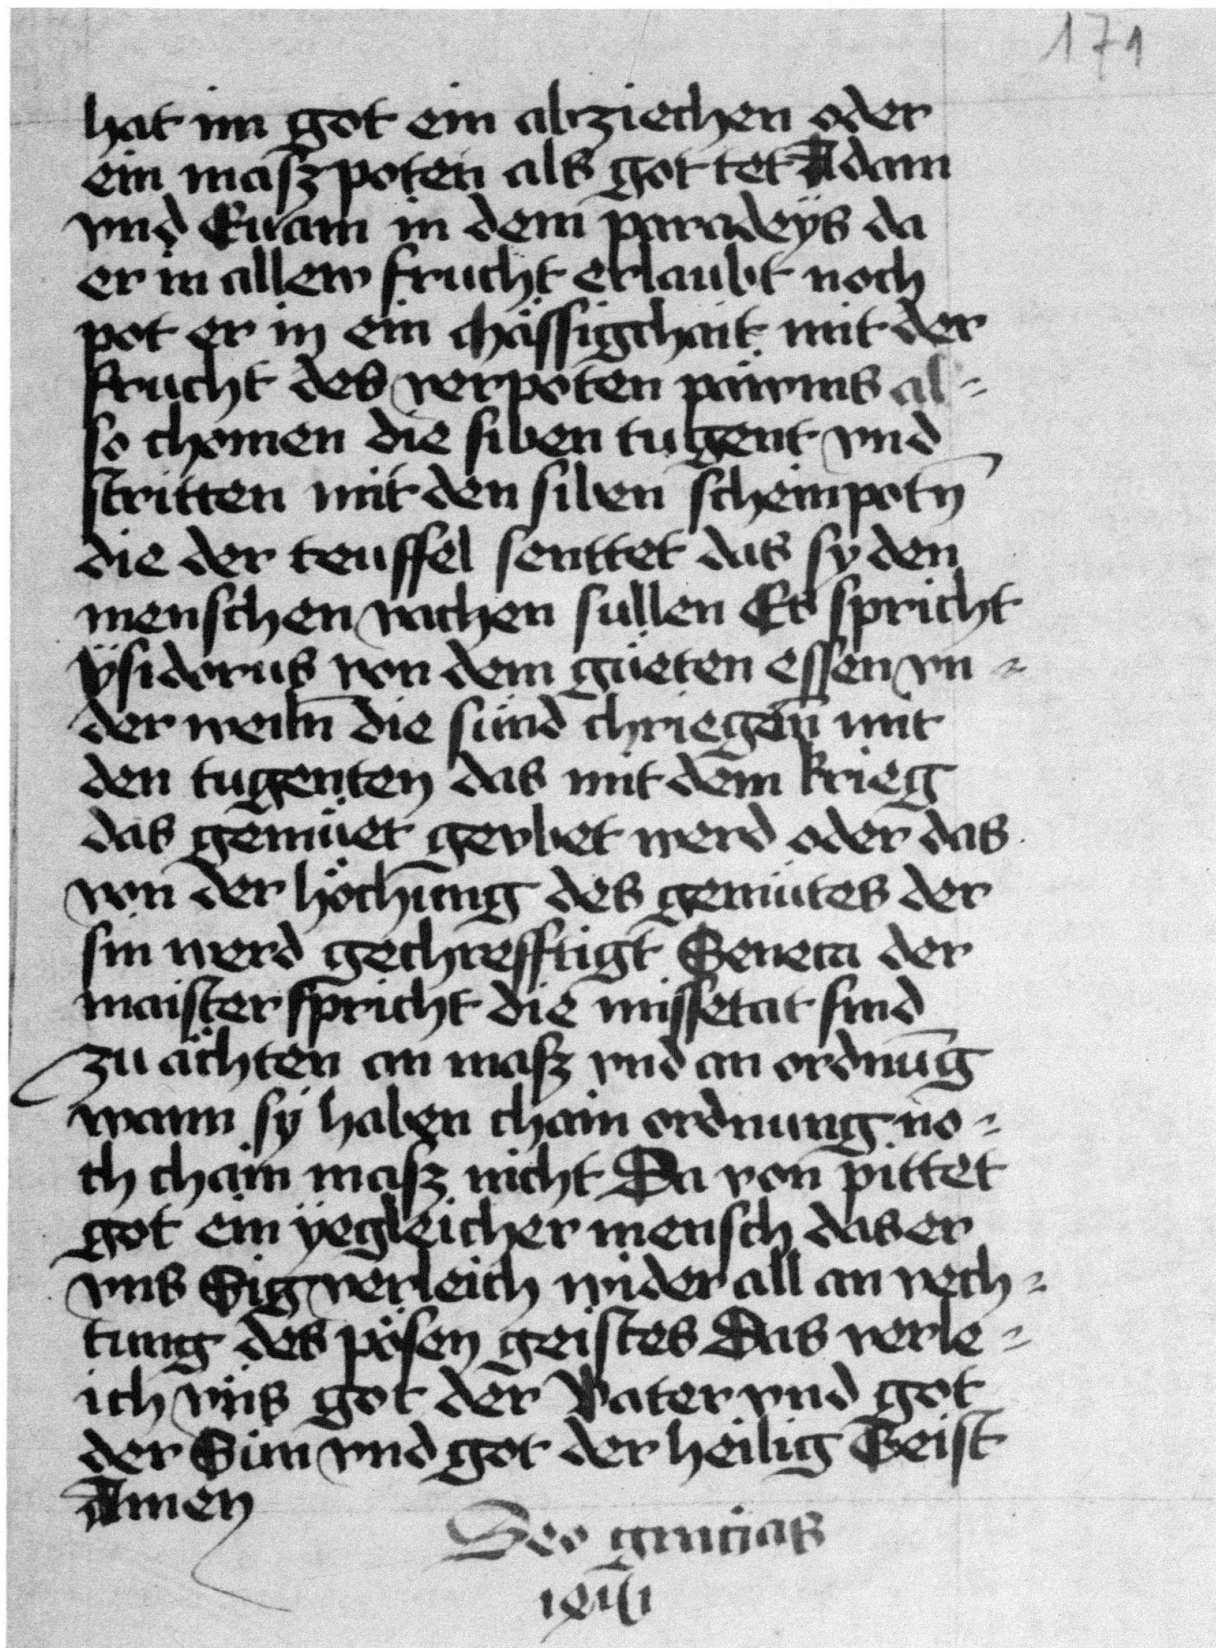 171
hat im got ein abziechen oder
ein masz poten als got tet Adam
vnd Euam in dem paradeÿs da
er in allew frucht erlaubt noch
pot er in ein chässigchait mit der
frucht des verpoten pawms al=
so chomen die siben tugent vnd
stritten mit den siben scheinpotn̄
die der teuffel senttet das sy den
menschen vachen sullen Es spricht
ÿsidorus von dem güeten essen vn=
der weiln̄ die sünd chriegen̄ mit
den tugenten das mit dem krieg
das gemüet gevbet werd oder das
von der höchūng des gemütes der
sin werd gechrefftigt Seneca der
maister spricht die missetat sind
zu ächten an masz vnd an ordnūg
wann sÿ haben chain ordnung no=
ch chain masz nicht Da von pittet
got ein ÿegleicher mensch das er
vns Sig verleich wider all an vech=
tung des pösen geistes Das verle=
ich vns got der Vater vnd got
der Sun vnd got der heilig Geist
Amen
Deo gracias